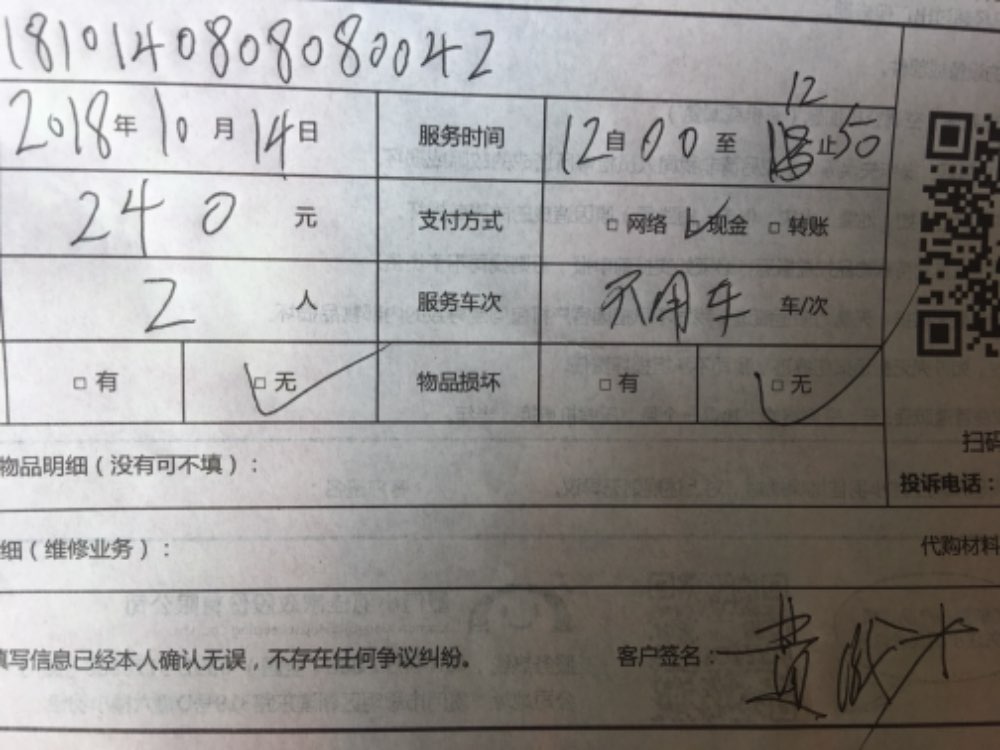 1810140808080042
2018年10月14日 服务时间 12自00至 12 止50
240元 支付方式 □网络 □现金 □转账
2人 服务车次 不用车 车/次
□有 □无 物品损坏 □有 □无
扫码
物品明细（没有可不填）：
投诉电话：
细（维修业务）： 代购材料
填写信息已经本人确认无误，不存在任何争议纠纷。 客户签名：黄